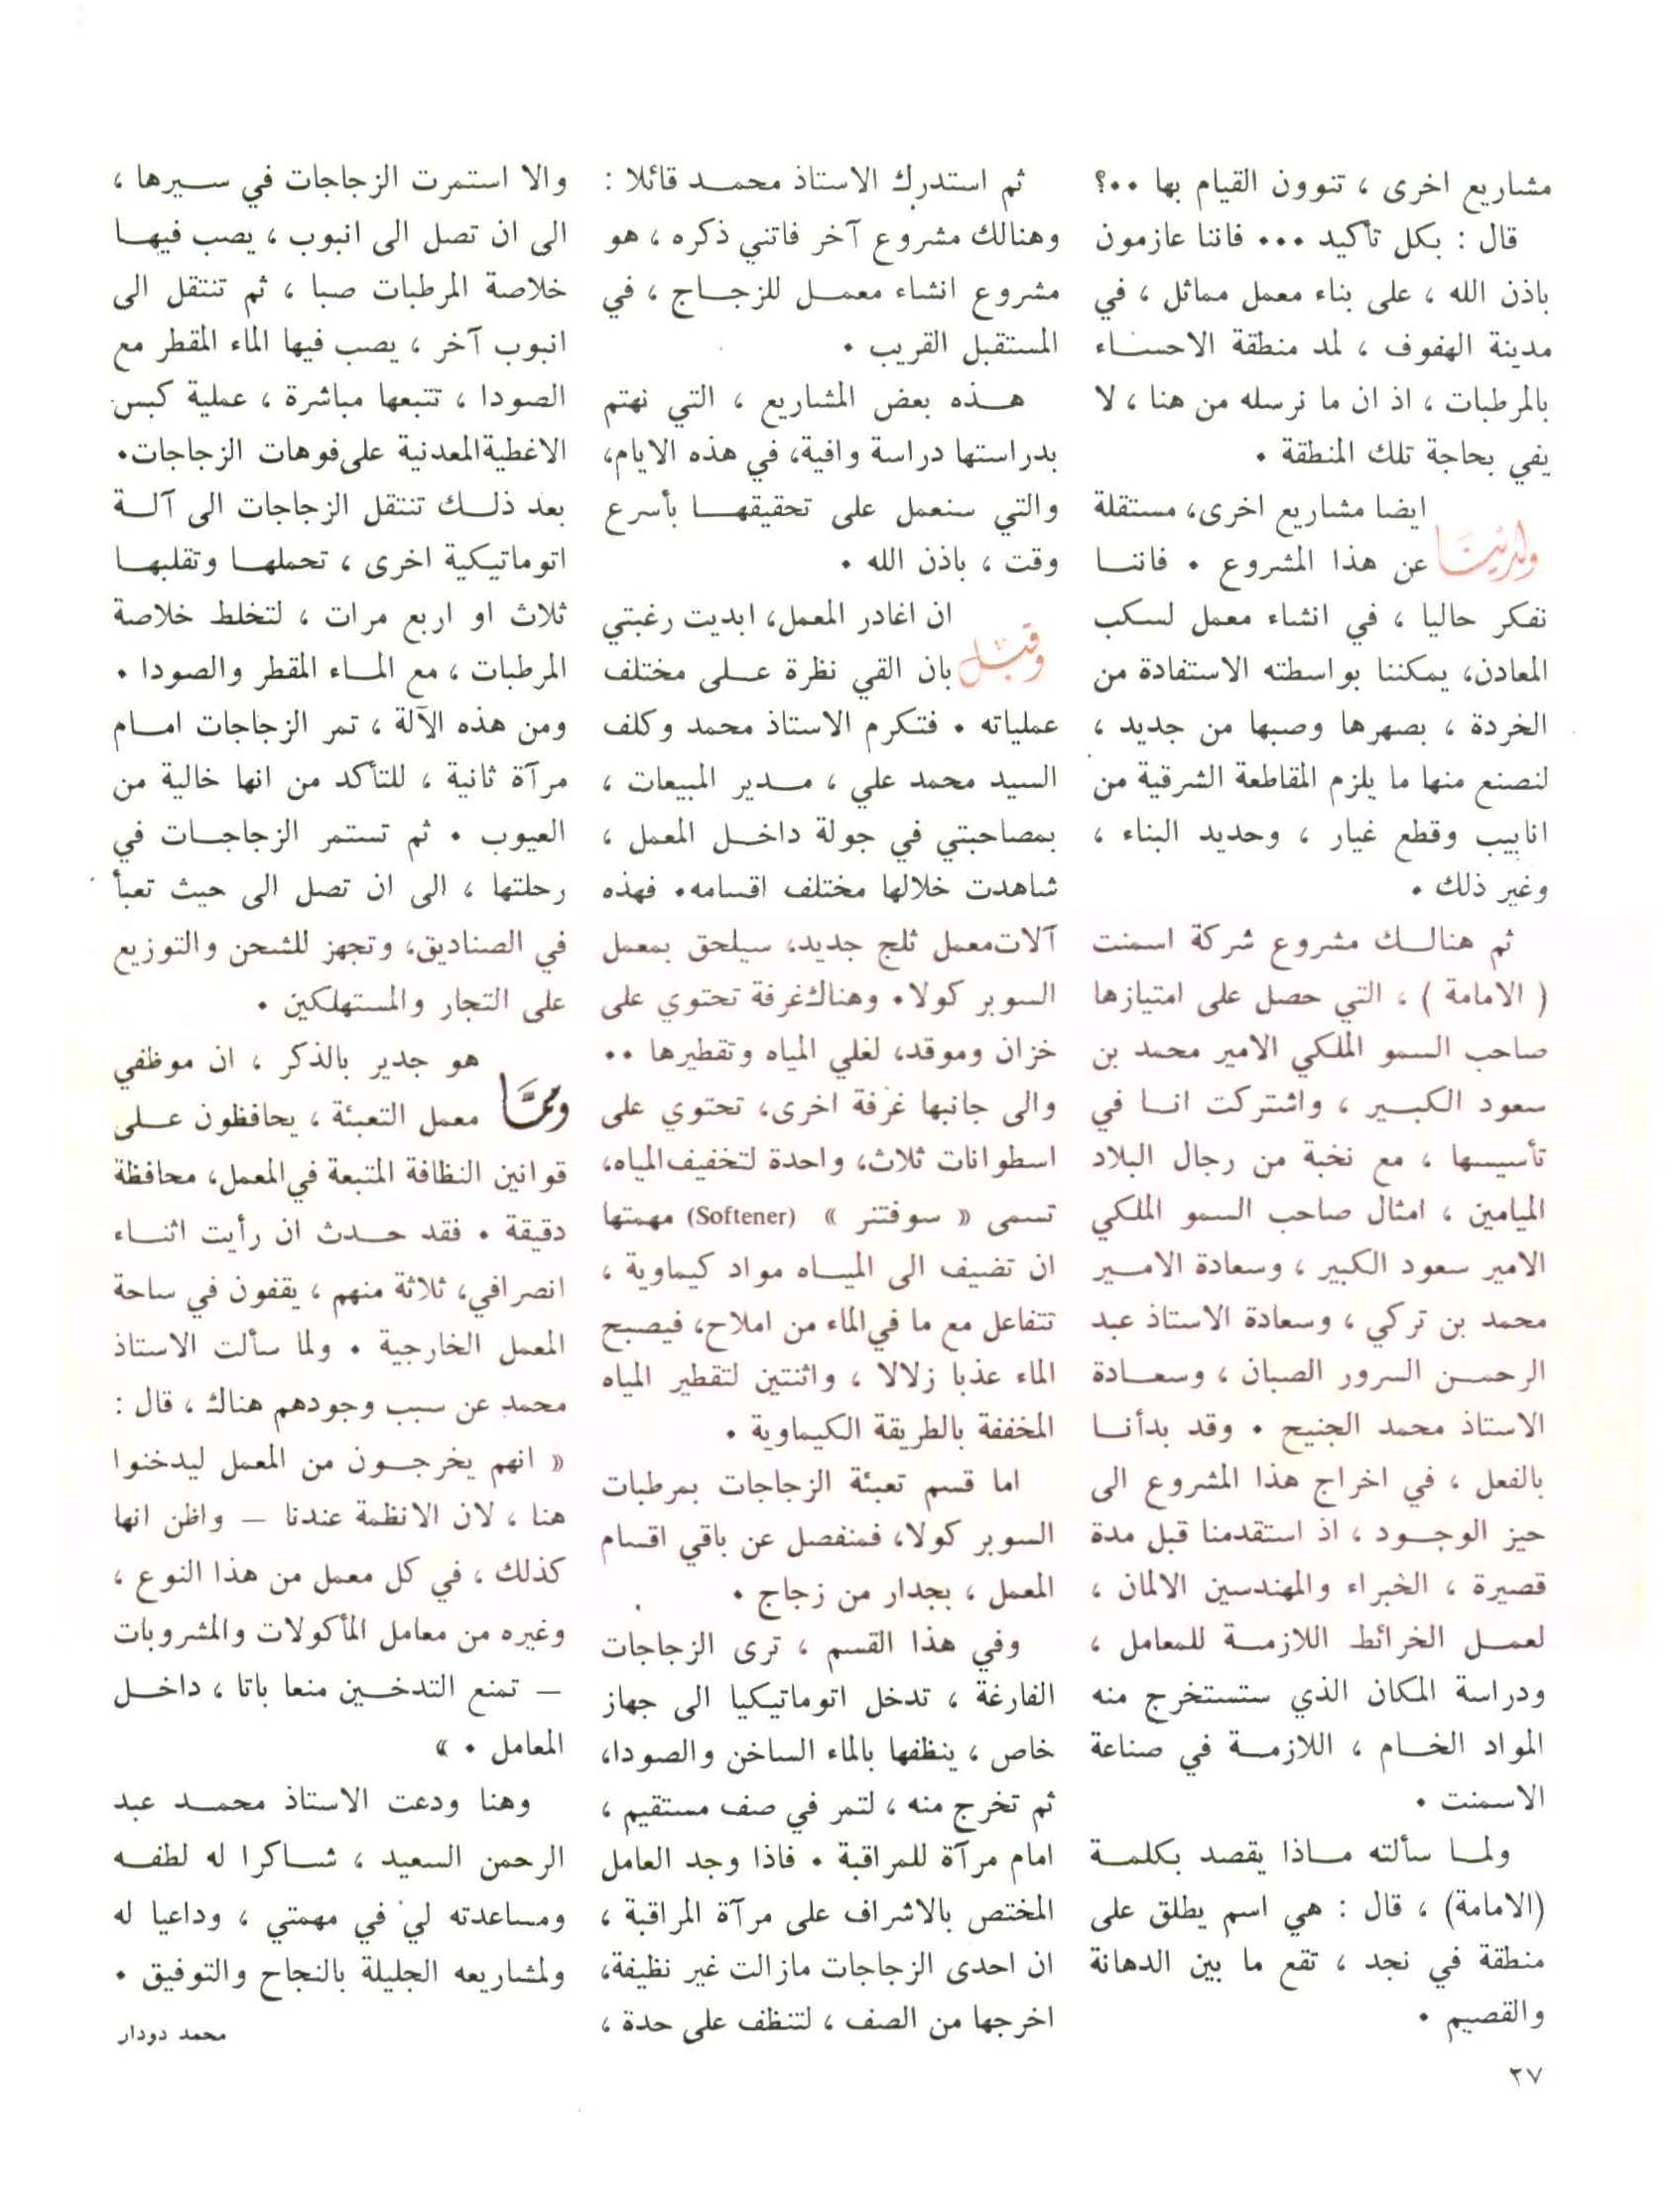 مشاريع اخرى ، تنوون القيام بها ٠٠؟
قال : بكل تأكيد ٠٠٠ فاننا عازمون
باذن الله ، على بناء معمل مماثل ، في
مدينة الهفوف ، لمد منطقة الاحساء
بالمرطبات ، اذ ان ما نرسله من هنا ، لا
يفي بحاجة تلك المنطقة ٠
ولدينا ايضا مشاريع اخرى، مستقلة
عن هذا المشروع ٠ فاننا
نفكر حاليا ، في انشاء معمل لسكب
المعادن، يمكننا بواسطته الاستفادة من
الخردة ، بصهرها وصبها من جديد ،
لنصنع منها ما يلزم المقاطعة الشرقية من
انابيب وقطع غيار ، وحديد البناء ،
وغير ذلك ٠
ثم هنالك مشروع شركة اسمنت
( الامامة ) ، التي حصل على امتيازها
صاحب السمو الملكي الامير محمد بن
سعود الكبير ، واشتركت انا في
تأسيسها ، مع نخبة من رجال البلاد
الميامين ، امثال صاحب السمو الملكي
الامير سعود الكبير ، وسعادة الامير
محمد بن تركي ، وسعادة الاستاذ عبد
الرحمن السرور الصبان ، وسعادة
الاستاذ محمد الجنيح ٠ وقد بدأنا
بالفعل ، في اخراج هذا المشروع الى
حيز الوجود ، اذ استقدمنا قبل مدة
قصيرة ، الخبراء والمهندسين الالمان ،
لعمل الخرائط اللازمة للمعامل ،
ودراسة المكان الذي ستستخرج منه
المواد الخام ، اللازمة في صناعة
الاسمنت ٠
ولما سألته ماذا يقصد بكلمة
(الامامة) ، قال : هي اسم يطلق على
منطقة في نجد ، تقع ما بين الدهانة
والقصيم ٠
ثم استدرك الاستاذ محمد قائلا :
وهنالك مشروع آخر فاتني ذكره ، هو
مشروع انشاء معمل للزجاج ، في
المستقبل القريب ٠
هذه بعض المشاريع ، التي نهتم
بدراستها دراسة وافية، في هذه الايام،
والتي سنعمل على تحقيقها بأسرع
وقت ، باذن الله ٠
وقبل ان اغادر المعمل، ابديت رغبتي
بان القي نظرة على مختلف
عملياته ٠ فتكرم الاستاذ محمد وكلف
السيد محمد علي ، مدير المبيعات ،
بمصاحبتي في جولة داخل المعمل ،
شاهدت خلالها مختلف اقسامه٠ فهذه
آلات معمل ثلج جديد، سيلحق بمعمل
السوبر كولا٠ وهناك غرفة تحتوي على
خزان وموقد، لغلي المياه وتقطيرها ٠٠
والى جانبها غرفة اخرى، تحتوي على
اسطوانات ثلاث، واحدة لتخفيف المياه،
تسمى « سوفتنر » (Softener) مهمتها
ان تضيف الى المياه مواد كيماوية ،
تتفاعل مع ما في الماء من املاح، فيصبح
الماء عذبا زلالا ، واثنتين لتقطير المياه
المخففة بالطريقة الكيماوية ٠
اما قسم تعبئة الزجاجات بمرطبات
السوبر كولا، فمنفصل عن باقي اقسام
المعمل ، بجدار من زجاج ٠
وفي هذا القسم ، ترى الزجاجات
الفارغة ، تدخل اتوماتيكيا الى جهاز
خاص ، ينظفها بالماء الساخن والصودا،
ثم تخرج منه ، لتمر في صف مستقيم ،
امام مرآة للمراقبة ٠ فاذا وجد العامل
المختص بالاشراف على مرآة المراقبة ،
ان احدى الزجاجات مازالت غير نظيفة،
اخرجها من الصف ، لتنظف على حدة ،
والا استمرت الزجاجات في سيرها ،
الى ان تصل الى انبوب ، يصب فيها
خلاصة المرطبات صبا ، ثم تنتقل الى
انبوب آخر ، يصب فيها الماء المقطر مع
الصودا ، تتبعها مباشرة ، عملية كبس
الاغطية المعدنية على فوهات الزجاجات٠
بعد ذلك تنتقل الزجاجات الى آلة
اتوماتيكية اخرى ، تحملها وتقلبها
ثلاث او اربع مرات ، لتخلط خلاصة
المرطبات ، مع الماء المقطر والصودا ٠
ومن هذه الآلة ، تمر الزجاجات امام
مرآة ثانية ، للتأكد من انها خالية من
العيوب ٠ ثم تستمر الزجاجات في
رحلتها ، الى ان تصل الى حيث تعبأ
في الصناديق، وتجهز للشحن والتوزيع
على التجار والمستهلكين ٠
ومما هو جدير بالذكر ، ان موظفي
معمل التعبئة ، يحافظون على
قوانين النظافة المتبعة في المعمل، محافظة
دقيقة ٠ فقد حدث ان رأيت اثناء
انصرافي، ثلاثة منهم ، يقفون في ساحة
المعمل الخارجية ٠ ولما سألت الاستاذ
محمد عن سبب وجودهم هناك ، قال :
« انهم يخرجون من المعمل ليدخنوا
هنا ، لان الانظمة عندنا — واظن انها
كذلك ، في كل معمل من هذا النوع ،
وغيره من معامل المأكولات والمشروبات
— تمنع التدخين منعا باتا ، داخل
المعامل ٠ »
وهنا ودعت الاستاذ محمد عبد
الرحمن السعيد ، شاكرا له لطفه
ومساعدته لي في مهمتي ، وداعيا له
ولمشاريعه الجليلة بالنجاح والتوفيق ٠
محمد دودار
٢٧